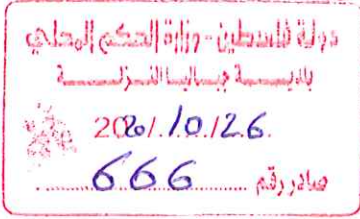 دولة فلسطين - وزارة الحكم المحلي
بلديـــة جبـاليـا النـزلـــة
2020/10/26
صادر رقم 666